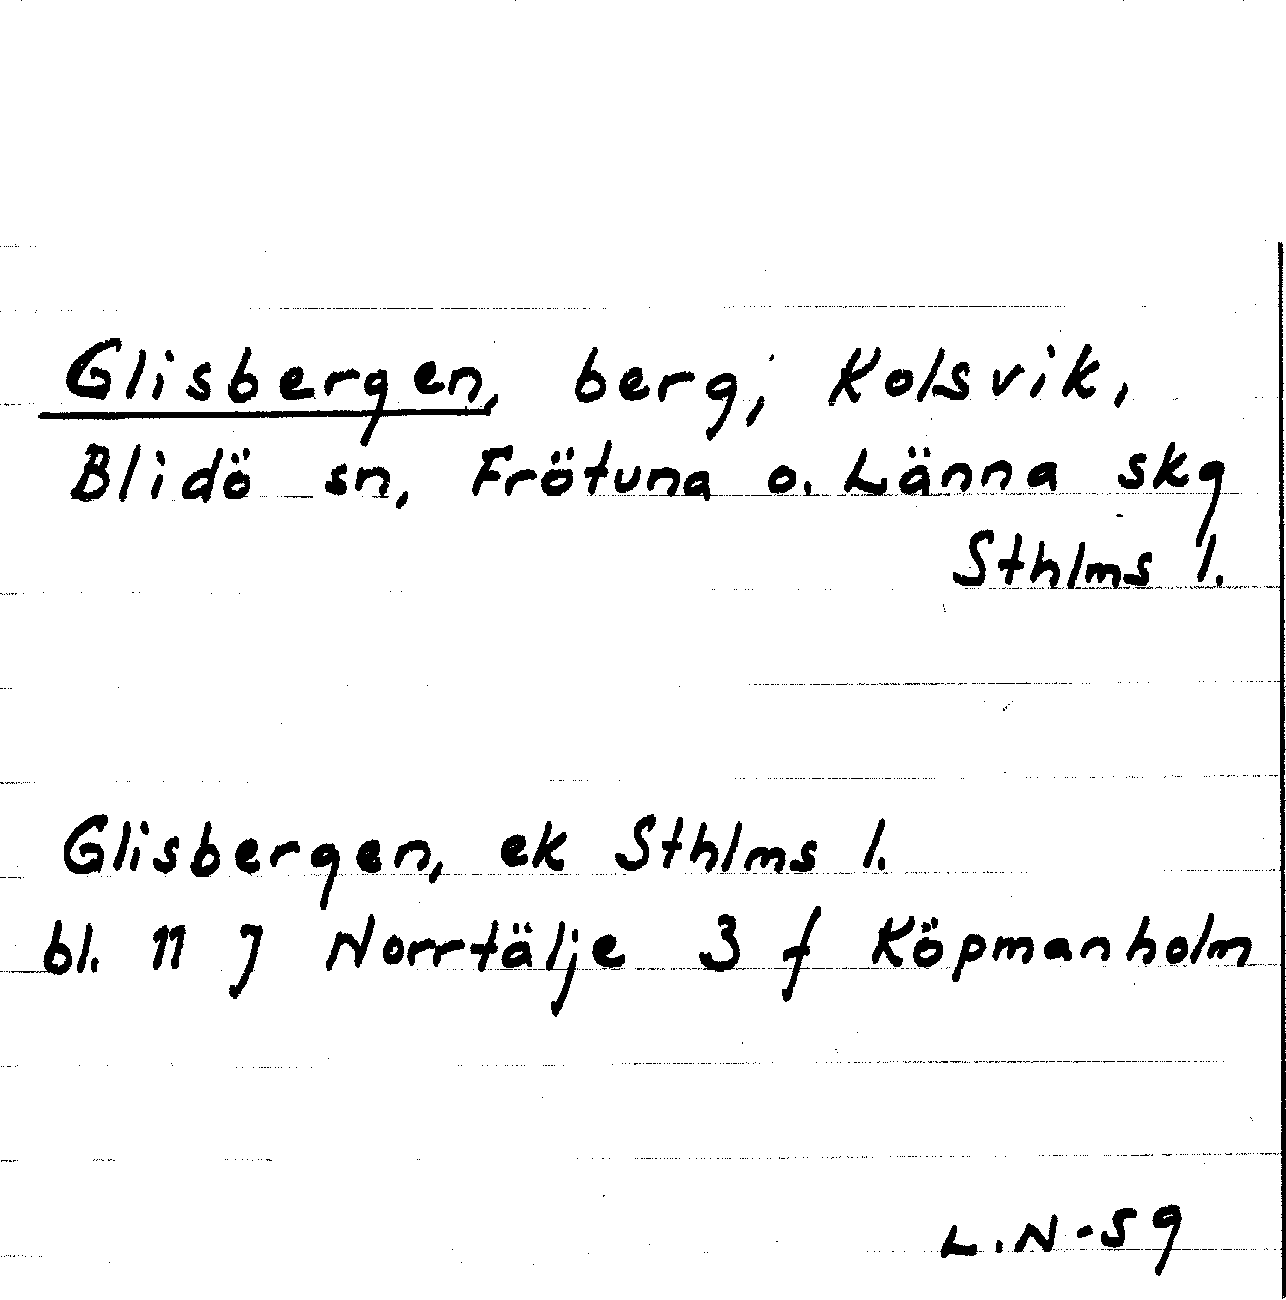 Glisbergen, berg; Kolsvik,
Blidö sn, Frötuna o. Länna skg
Sthlms l.
Glisbergen, ek Sthlms l.
bl. 11 J Norrtälje 3 f Köpmanholm
L.N-59